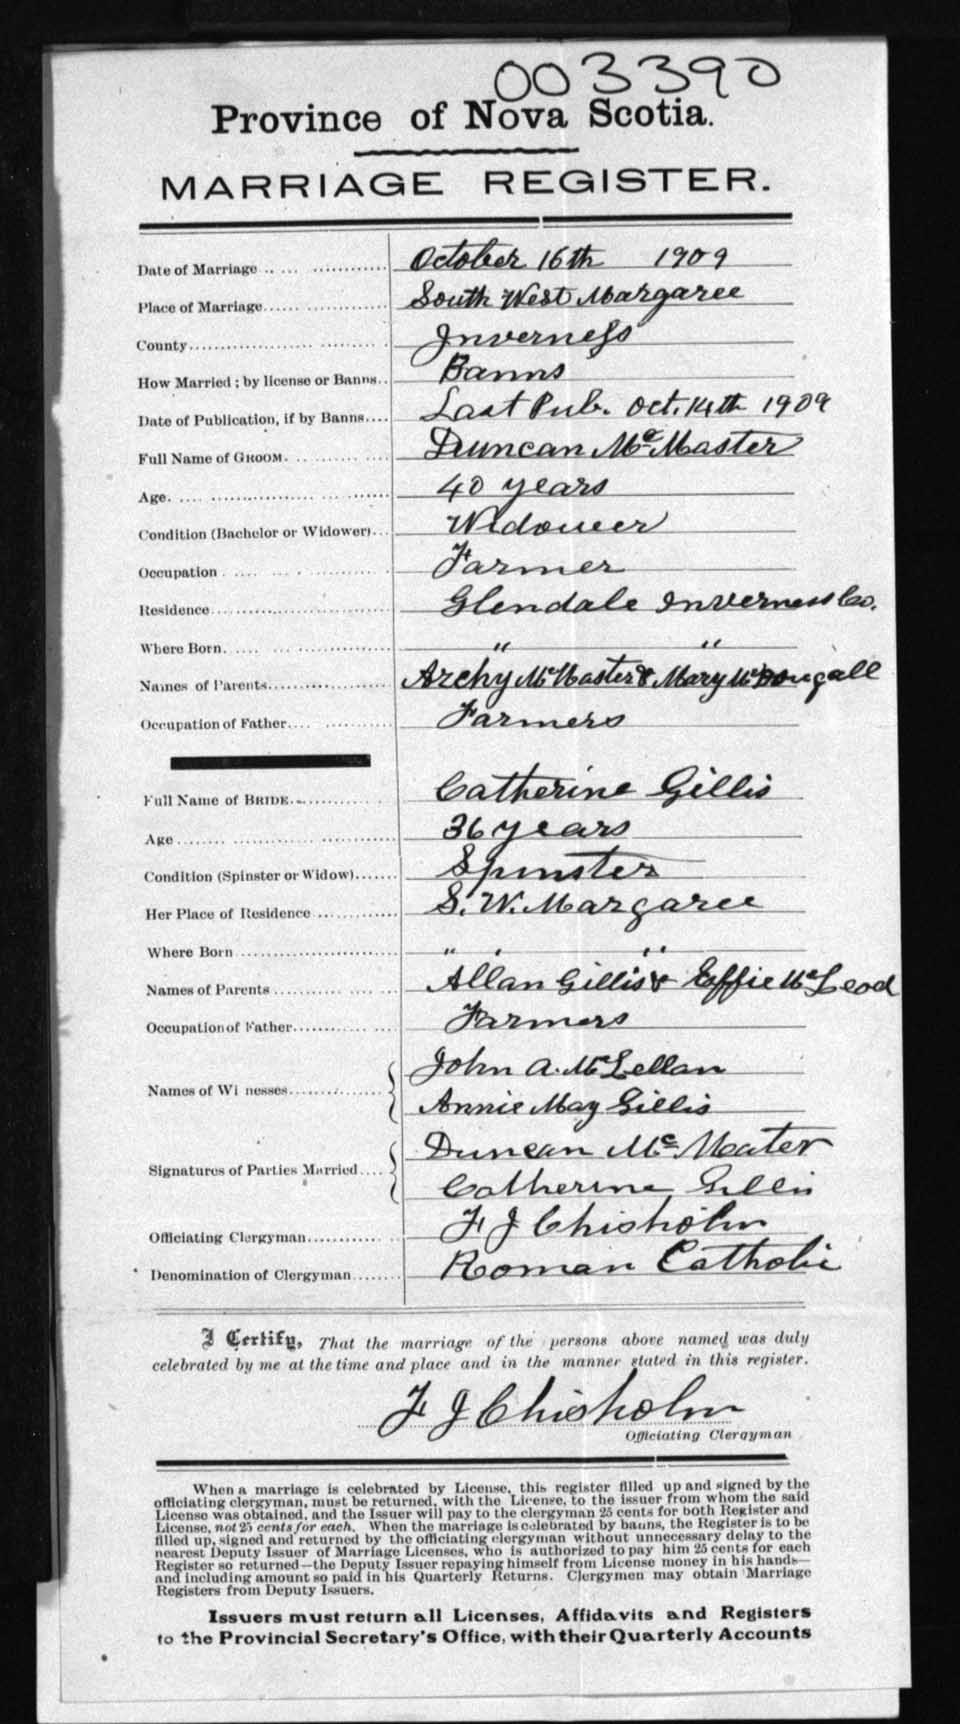 003390
Province of Nova Scotia.
MARRIAGE REGISTER.
Date of Marriage October 16th 1909
Place of Marriage South West Margaree
County Inverness
How Married; by license or Banns Banns
Date of Publication, if by Banns Last Pub. Oct. 14th 1909
Full Name of GROOM Duncan McMaster
Age 40 years
Condition (Bachelor or Widower) Widower
Occupation Farmer
Residence Glendale Inverness Co.
Where Born " "
Names of Parents Archy McMaster & Mary McDougall
Occupation of Father Farmers
Full Name of BRIDE Catherine Gillis
Age 36 years
Condition (Spinster or Widow) Spinster
Her Place of Residence S. W. Margaree
Where Born " " "
Names of Parents Allan Gillis & Effie McLeod
Occupation of Father Farmers
Names of Wi nesses John A. McLellan
Annie May Gillis
Signatures of Parties Married Duncan McMater
Catherine Gillis
Officiating Clergyman F J Chisholm
Denomination of Clergyman Roman Catholic
I Certify, That the marriage of the persons above named was duly
celebrated by me at the time and place and in the manner stated in this register.
F J Chisholm
Officiating Clergyman
When a marriage is celebrated by License, this register filled up and signed by the
officiating clergyman, must be returned, with the License, to the issuer from whom the said
License was obtained, and the Issuer will pay to the clergyman 25 cents for both Register and
License, not 25 cents for each. When the marriage is celebrated by banns, the Register is to be
filled up, signed and returned by the officiating clergyman without unnecessary delay to the
nearest Deputy Issuer of Marriage Licenses, who is authorized to pay him 25 cents for each
Register so returned—the Deputy Issuer repaying himself from License money in his hands—
and including amount so paid in his Quarterly Returns. Clergymen may obtain Marriage
Registers from Deputy Issuers.
Issuers must return all Licenses, Affidavits and Registers
to the Provincial Secretary's Office, with their Quarterly Accounts